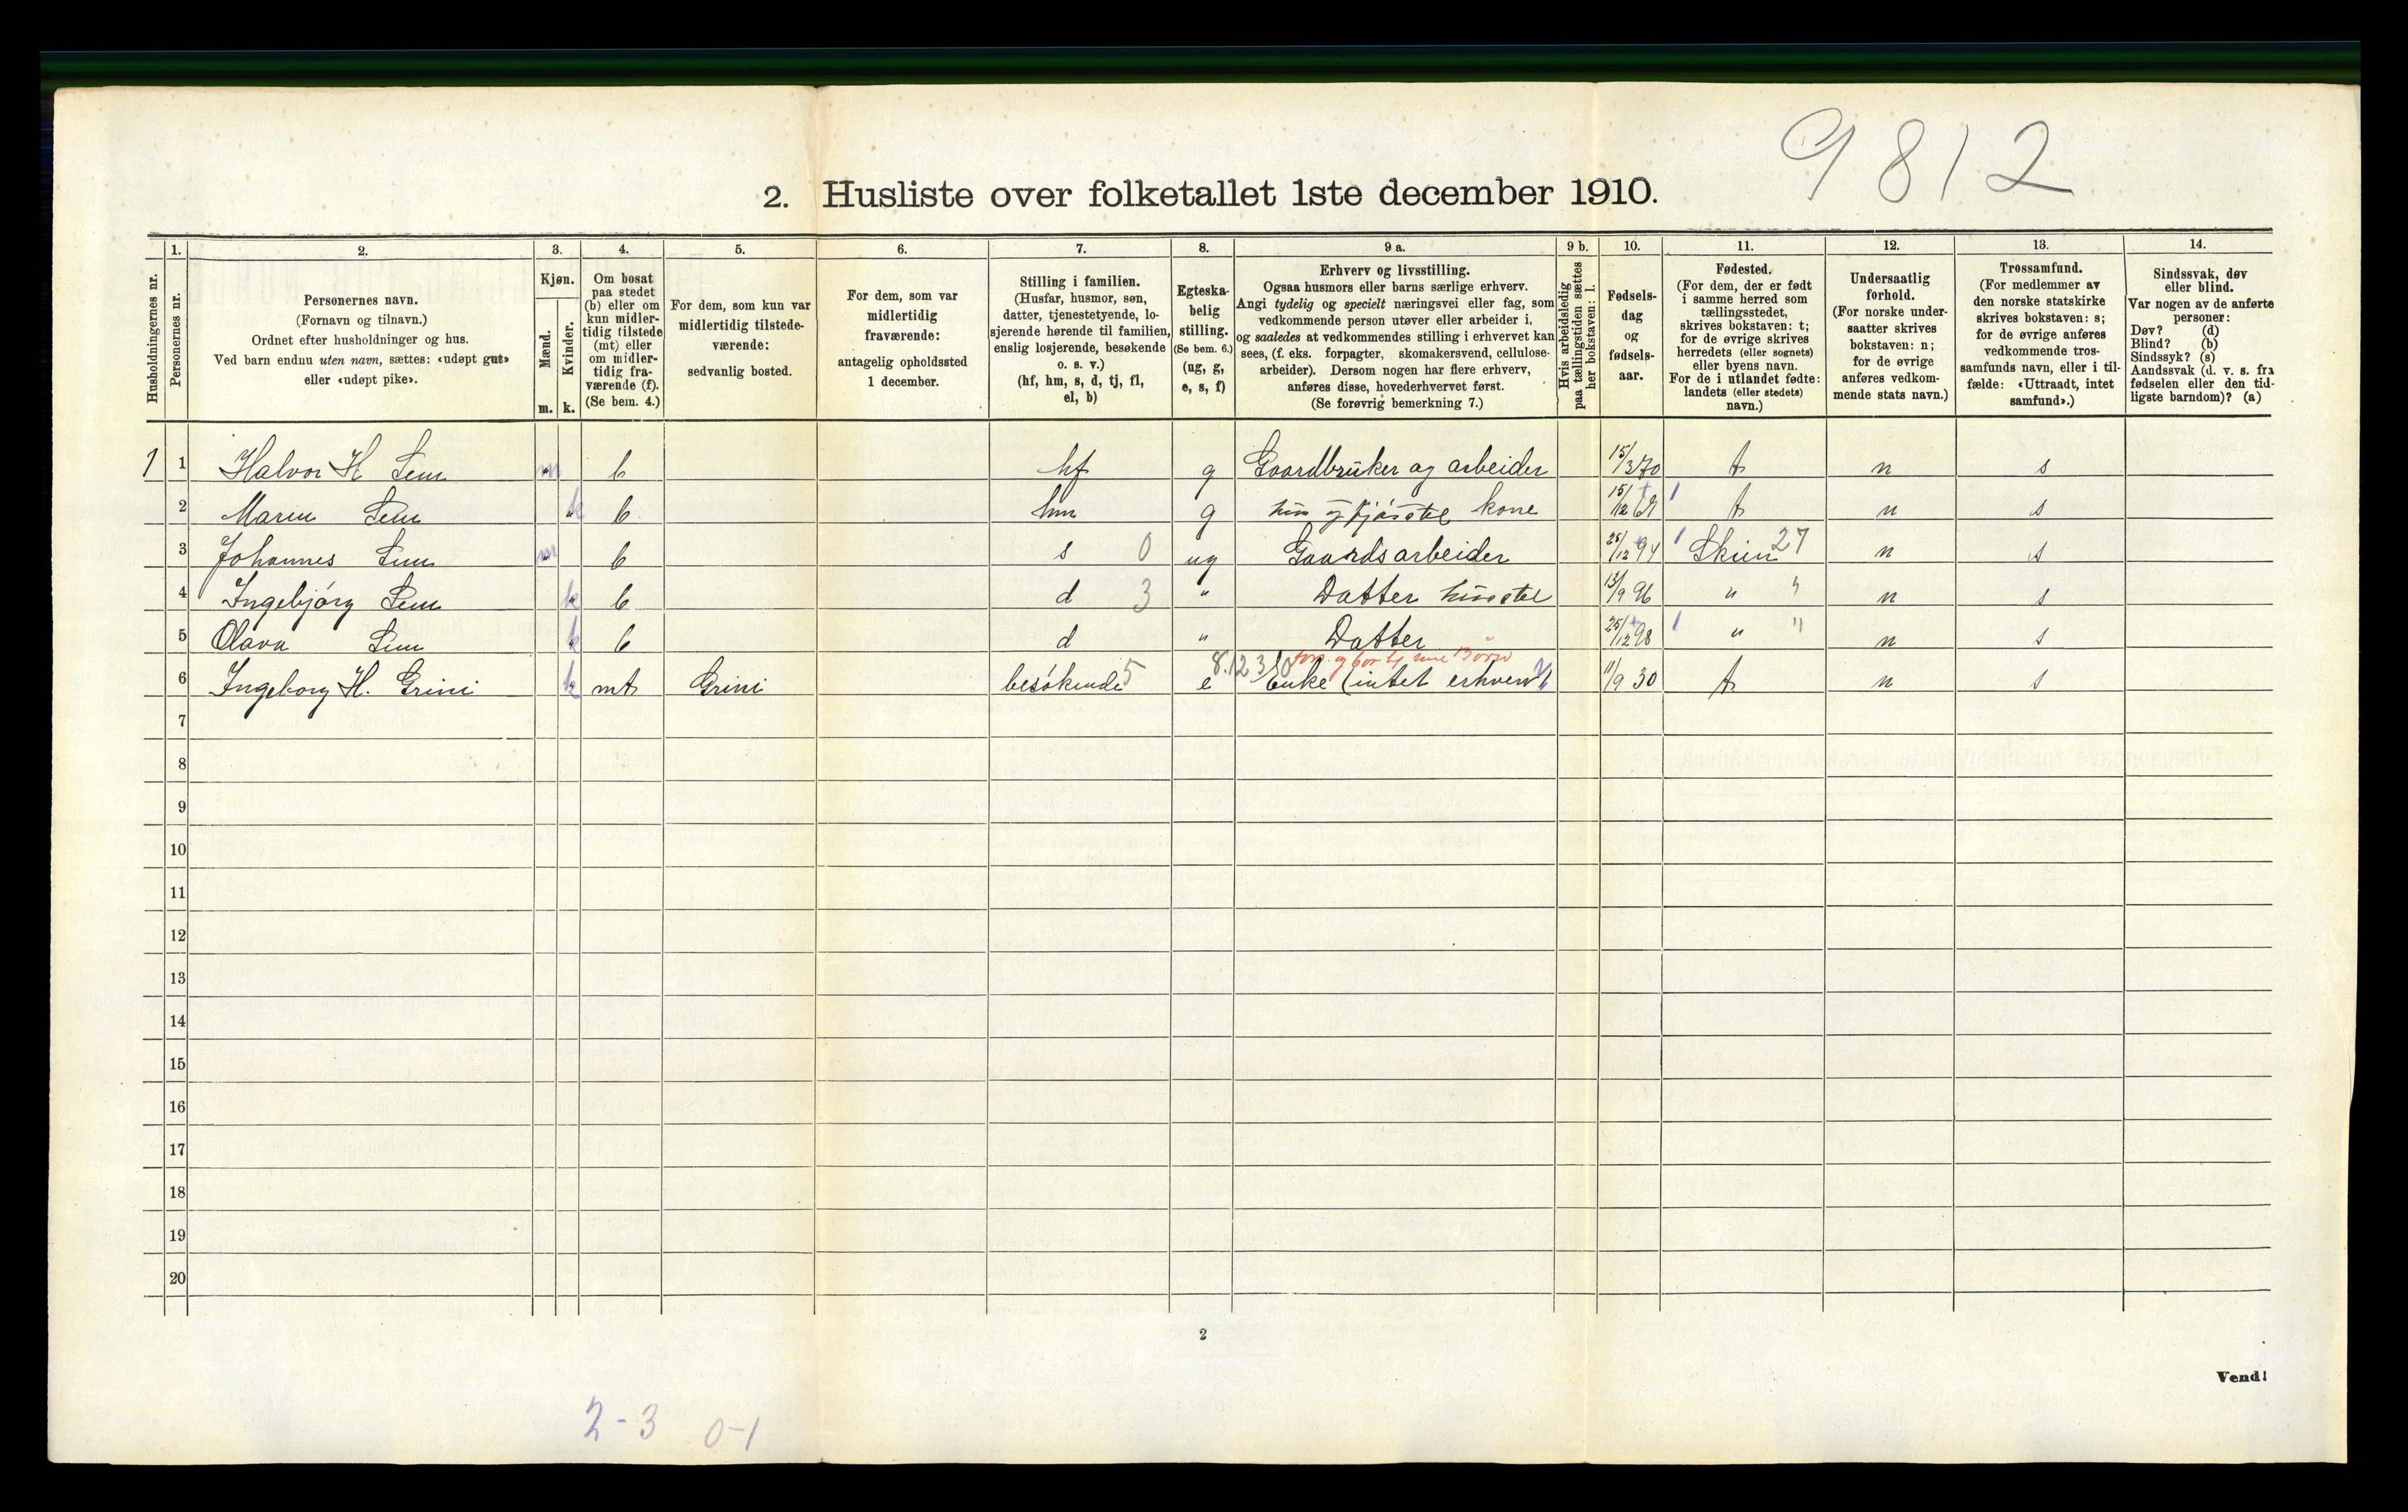 9812
2. Husliste over folketallet 1ste december 1910.
Husholdningernes nr.
1.
Personernes nr.
2.
Personernes navn.
(Fornavn og tilnavn.)
Ordnet efter husholdninger og hus.
Ved barn endnu uten navn, sættes: «udøpt gut»
eller «udøpt pike».
3.
Kjøn.
Mænd.
m.
Kvinder.
k.
4.
Om bosat
paa stedet
(b) eller om
kun midler-
tidig tilstede
(mt) eller
om midler-
tidig fra-
værende (f).
(Se bem. 4.)
5.
For dem, som kun var
midlertidig tilstede-
værende:
sedvanlig bosted.
6.
For dem, som var
midlertidig
fraværende:
antagelig opholdssted
1 december.
7.
Stilling i familien.
(Husfar, husmor, søn,
datter, tjenestetyende, lo-
sjerende hørende til familien,
enslig losjerende, besøkende
o. s. v.)
(hf, hm, s, d, tj, fl,
el, b)
8.
Egteska-
belig
stilling.
(Se bem. 6.)
(ug, g,
e, s, f)
9 a.
Erhverv og livsstilling.
Ogsaa husmors eller barns særlige erhverv.
Angi tydelig og specielt næringsvei eller fag, som
vedkommende person utøver eller arbeider i,
og saaledes at vedkommendes stilling i erhvervet kan
sees, (f. eks. forpagter, skomakersvend, cellulose-
arbeider). Dersom nogen har flere erhverv,
anføres disse, hovederhvervet først.
(Se forøvrig bemerkning 7.)
9 b.
Hvis arbeidsledig
paa tællingstiden sættes
her bokstaven: l.
10.
Fødsels-
dag
og
fødsels-
aar.
11.
Fødested.
(For dem, der er født
i samme herred som
tællingsstedet,
skrives bokstaven: t;
for de øvrige skrives
herredets (eller sognets)
eller byens navn.
For de i utlandet fødte:
landets (eller stedets)
navn.)
12.
Undersaatlig
forhold.
(For norske under-
saatter skrives
bokstaven: n;
for de øvrige
anføres vedkom-
mende stats navn.)
13.
Trossamfund.
(For medlemmer av
den norske statskirke
skrives bokstaven: s;
for de øvrige anføres
vedkommende tros-
samfunds navn, eller i til-
fælde: «Uttraadt, intet
samfund».)
14.
Sindssvak, døv
eller blind.
Var nogen av de anførte
personer:
Døv? (d)
Blind? (b)
Sindssyk? (s)
Aandssvak (d. v. s. fra
fødselen eller den tid-
ligste barndom)? (a)
1 1 Halvor H Sem m b hf g Gaardbruker og arbeider 15/3 70 t n s
2 Maren Sem k b hm g hus og fjøsstel kone 15/12 t n s
3 Johannes Sem m b s 0 ug Gaardsarbeider 25/12 94 Skien 27 n s
4 Ingebjørg Sem k b d 3 " Datter husstel 13/9 96 " " n s
5 Olava Sem k b d " Datter 25/12 98 " " n s
6 Ingeborg H. Grini k mt Grini besøkende 5 e Enke (intet erhverv) 11/9 30 t n s
7
8
9
10
11
12
13
14
15
16
17
18
19
20
2
Vend!
2-3 0-1